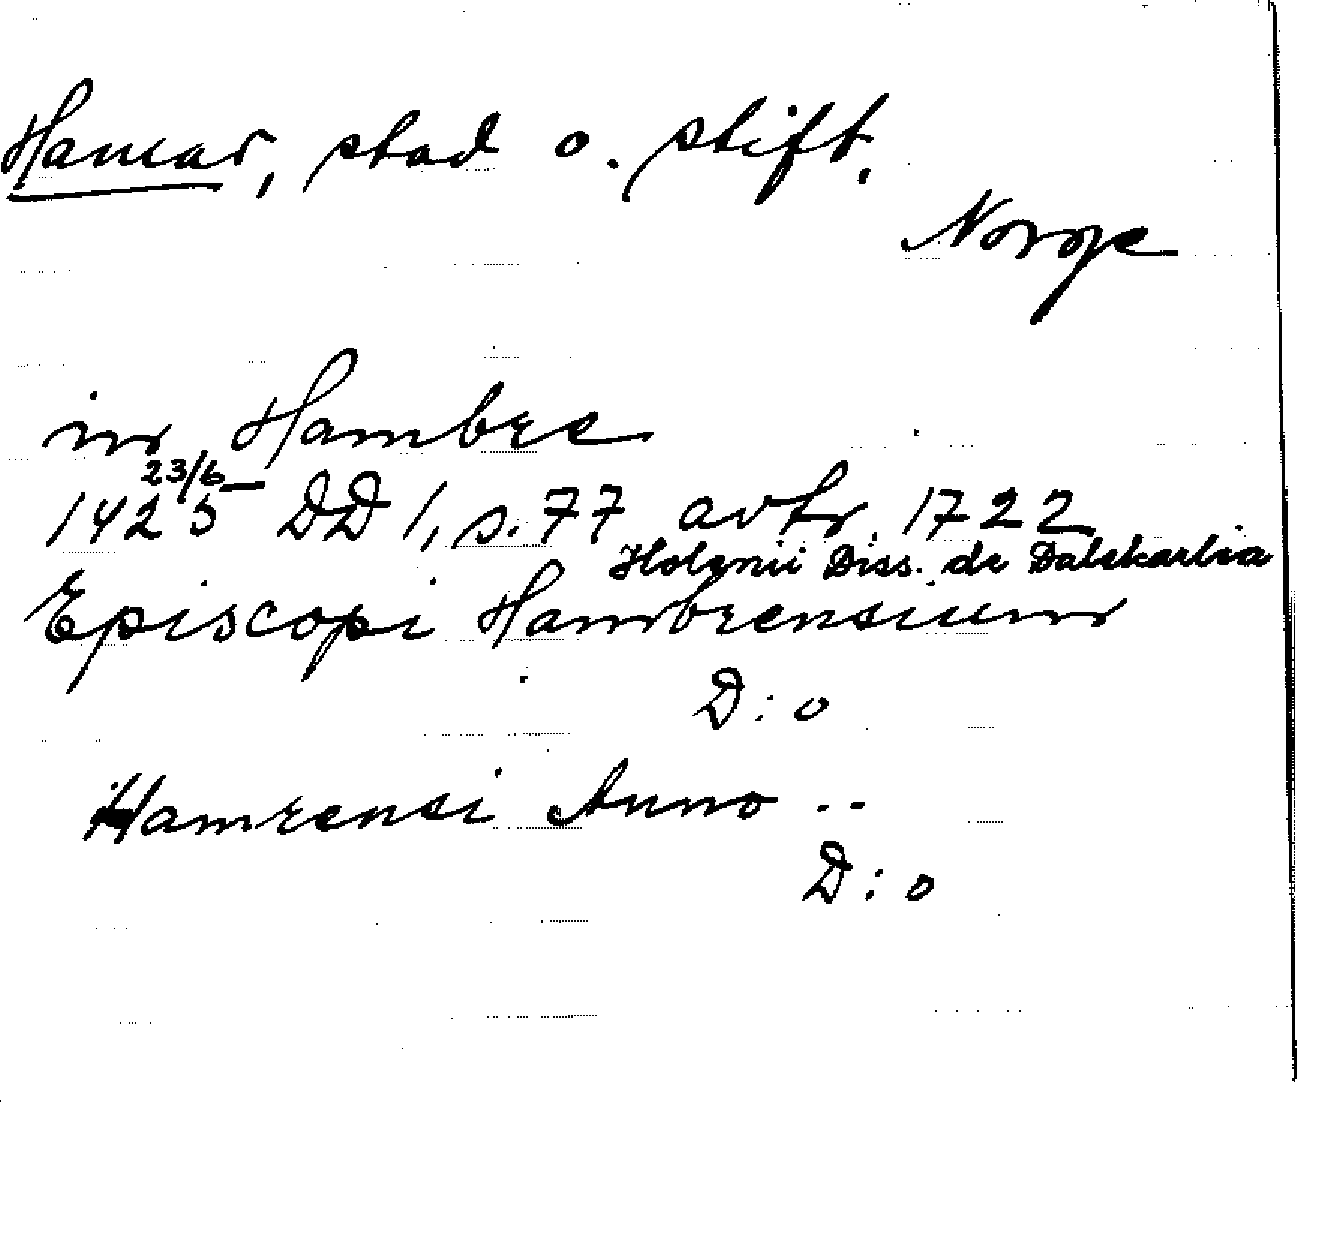 Hamar, stad o. stift,
Norge
in Hambre
23/6
1425 DD 1, s. 77 avtr. 1722
Holenii Diss. de Dalekarlia
Episcopi Hambrensium
D:o
Hamrensi Anno --
D:o